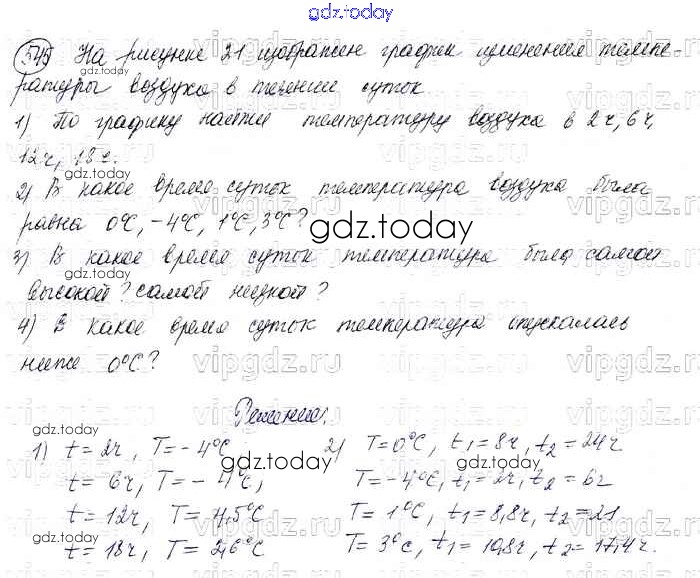 gdz.today
545 На рисунке 21 изображен график изменения темпе-
ратуры воздуха в течение суток.
1) По графику найти температуру воздуха в 2ч, 6ч,
12ч, 18ч.
2) В какое время суток температура воздуха была
равна 0°C, -4°C, 1°C, 3°C?
3) В какое время суток температура была самой
высокой? самой низкой?
4) В какое время суток температура опускалась
ниже 0°C?
Решение:
1) t = 2ч, T = -4°C
t = 6ч, T = -4°C,
t = 12ч, T = 4,5°C
t = 18ч, T = 2,6°C
2) T=0°C, t₁=8ч, t₂=24ч
T=-4°C, t₁=2ч, t₂=6ч
T=1°C, t₁=8,8ч, t₂=21
T=3°C, t₁=10,8ч, t₂=17,4ч.
gdz.today
vipgdz.ru